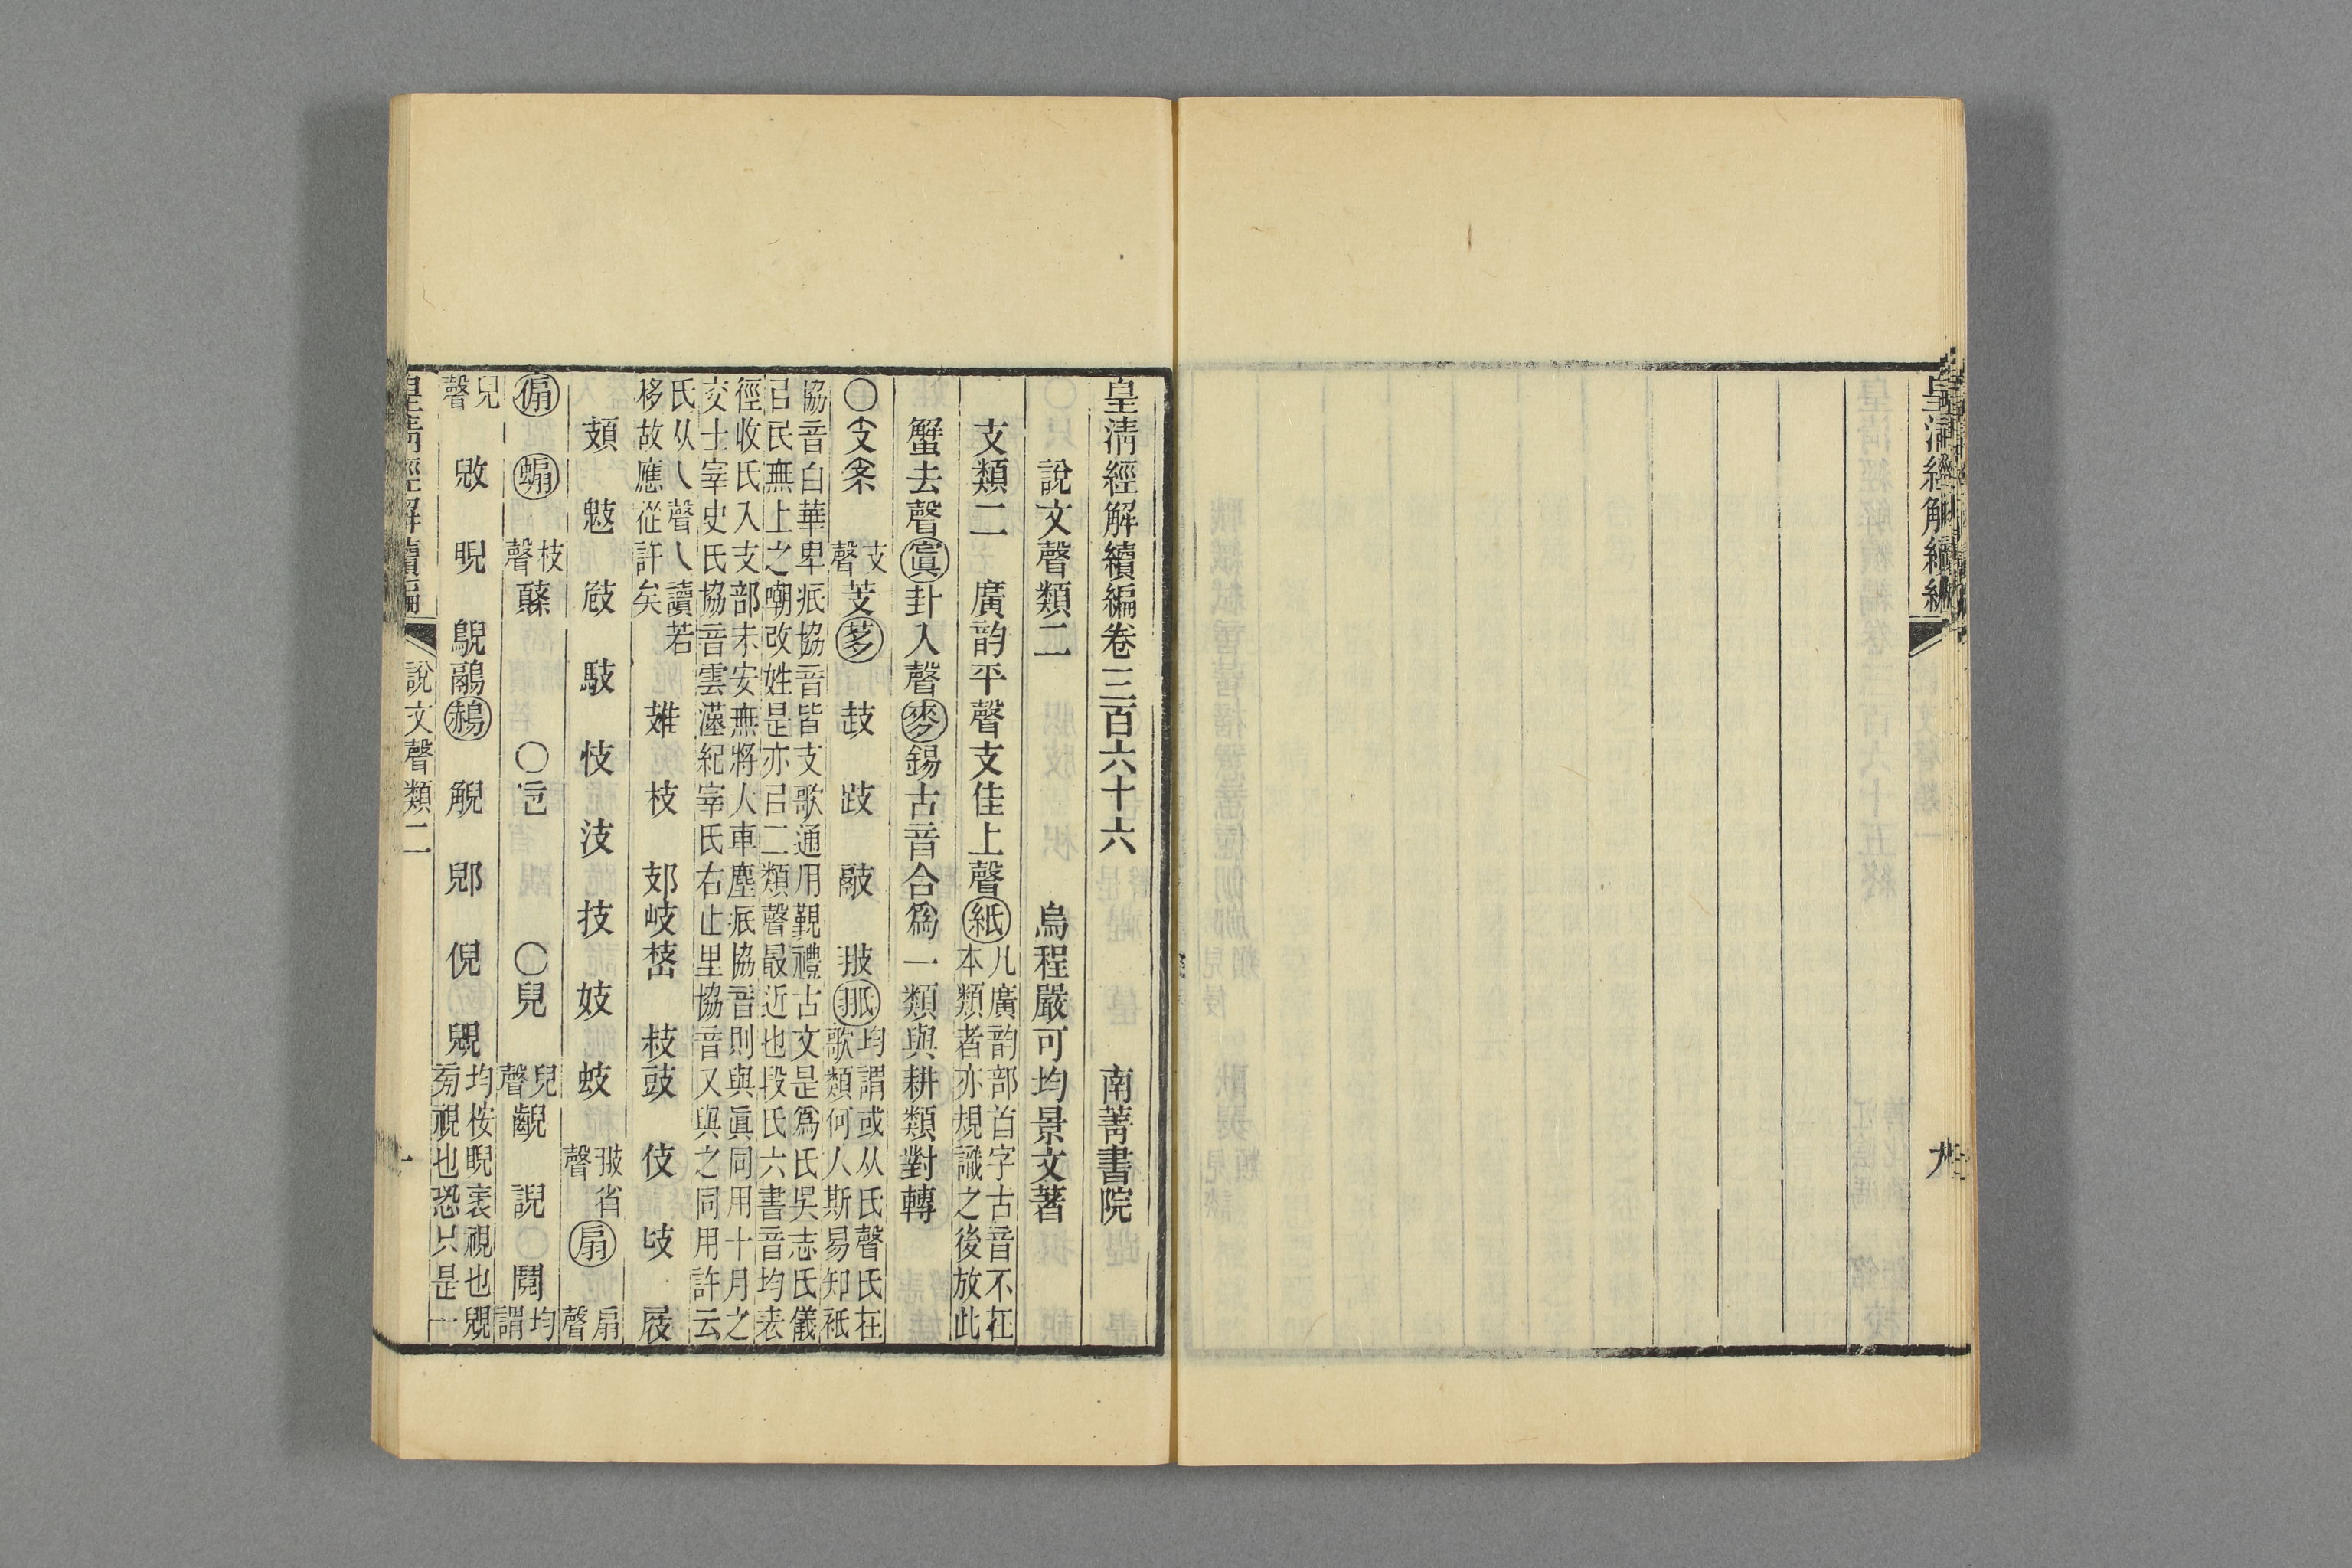 皇清經解續編
九
皇清經解續編卷三百六十六　南菁書院
說文聲類二　烏程嚴可均景文著
支類二　廣韵平聲支佳上聲紙凡廣韵部首字古音不在
本類者亦規識之後放此
蟹去聲寘卦入聲麥錫古音合爲一類與耕類對轉
〇支
支聲
芰茤
攱
跂
敲
翄𦐊
均謂或从氏聲氏在
歌類何人斯易知祇
協音白華卑疧協音皆支歌通用覲禮古文是爲氏吳志氏儀
㠯民無上之嘲改姓是亦㠯二類聲最近也段氏六書音均表
徑收氏入支部未安無將大車塵疧協音則與眞同用十月之
交士宰史氏協音雲漢紀宰氏右止里協音又與之同用許云
氏从乀聲乀讀若
栘故應從許矣
䧴
枝
郂岐𣙺
㩽豉
伎
歧
屐
頍
鬾
庋
馶
忮
汥
技
妓
蚑
翄省聲
扇
扇聲
偏
蝙
枝聲
〇
〇兒
兒聲
齯
說
鬩
均謂
兒聲
敓
睨
鶃鷊鶂
觬
郳
倪
覞
均桉睨衺視也覞
㫄視也恐只是一
皇清經解續編　說文聲類二　一